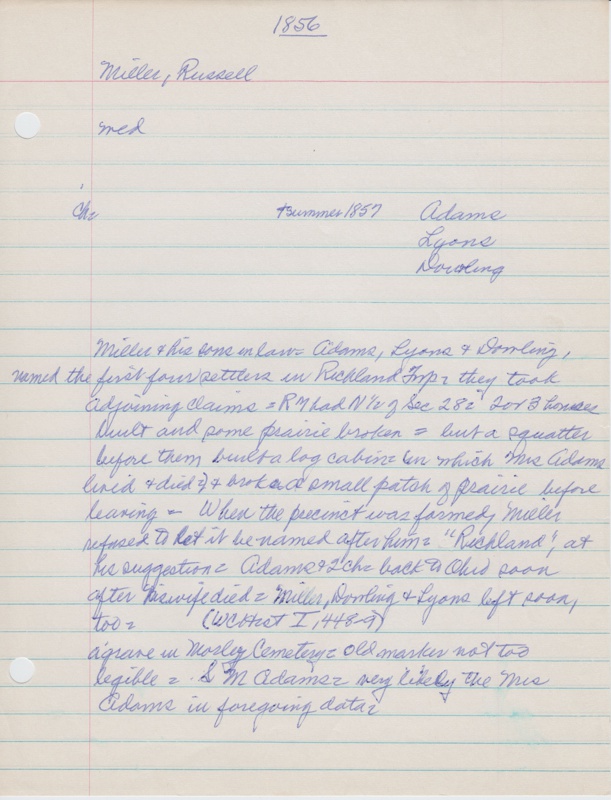 1856
Miller, Russell
med
Ch=
+summer 1857 Adams
Lyons
Dowling
Miller & his sons in law = Adams, Lyons & Dowling,
named the first four settlers in Richland Twp = they took
adjoining claims = RM had N½ of Sec 28 = "2 or 3 houses
built and some prairie broken = but a squatter
before them built a log cabin = (in which Mrs Adams
lived & died =) & broke a small patch of prairie before
leaving = When the precinct was formed, Miller
refused to let it be named after him = "Richland", at
his suggestion = Adams & 2 ch = back to Ohio soon
after his wife died = Miller, Dowling & Lyons left soon,
too = (WCHist I, 448-9)
a grave in Mosley Cemetery = old marker not too
legible = S M Adams = very likely the Mrs
Adams in foregoing data =